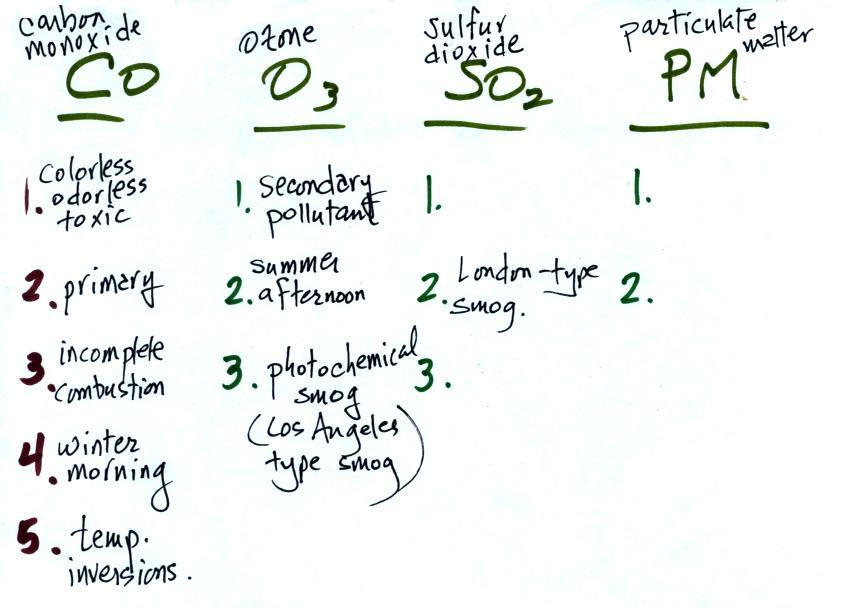 carbon
monoxide
CO
1. Colorless
odorless
toxic
2. primary
3. incomplete
combustion
4. winter
morning
5. temp.
inversions.
ozone
O3
1. Secondary
pollutant
2. summer
afternoon
3. photochemical
smog
(Los Angeles
type smog)
sulfur
dioxide
SO2
1.
2. London-type
smog.
3.
particulate
matter
PM
1.
2.